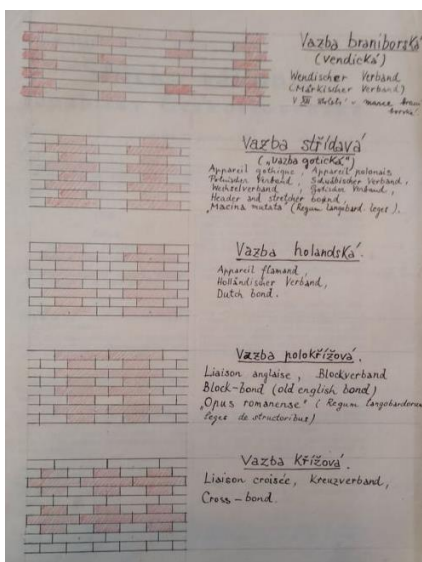 Vazba braniborská
(vendická)
Wendischer Verband
(Märkischer Verband)
Vazba střídavá
(„vazba gotická")
Appareil gothique, Appareil polonais
Polnischer Verband, Schottischer Verband,
Wechselverband, Gotischer Verband,
Header and stretcher bound,
„Macina mutata" (Regum langobard. leges).
Vazba holandská.
Appareil flamand,
Holländischer Verband,
Dutch bond.
Vazba polokřížová.
Liaison anglaise, Blockverband
Block-bond (old english bond)
„Opus romanense" (Regum langobardorum
leges de structoribus)
Vazba křížová.
Liaison croisée, Kreuzverband,
Cross-bond.